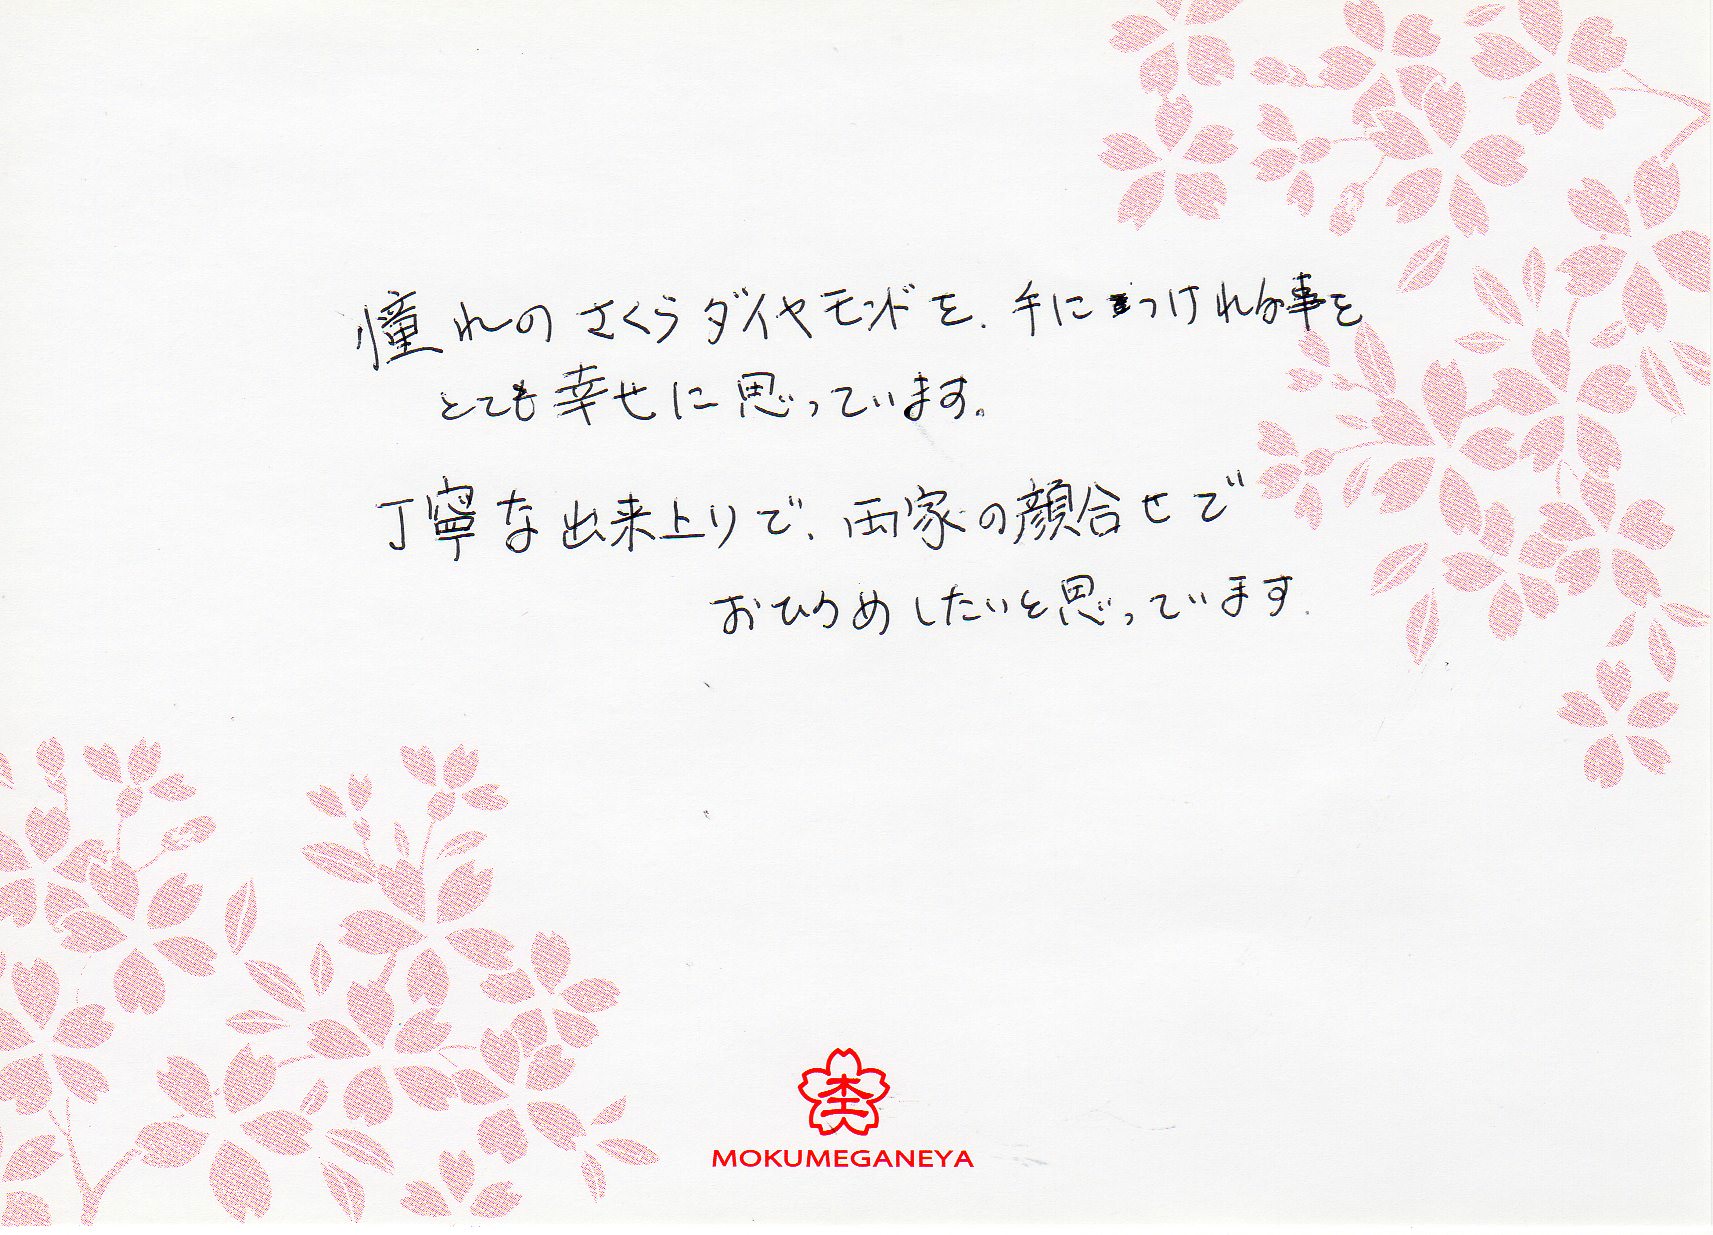 憧れの さくらダイヤモンドを、手につけれる事を
とても幸せに思っています。
丁寧な出来上りで、両家の顔合せで
おひろめしたいと思っています.
MOKUMEGANEYA